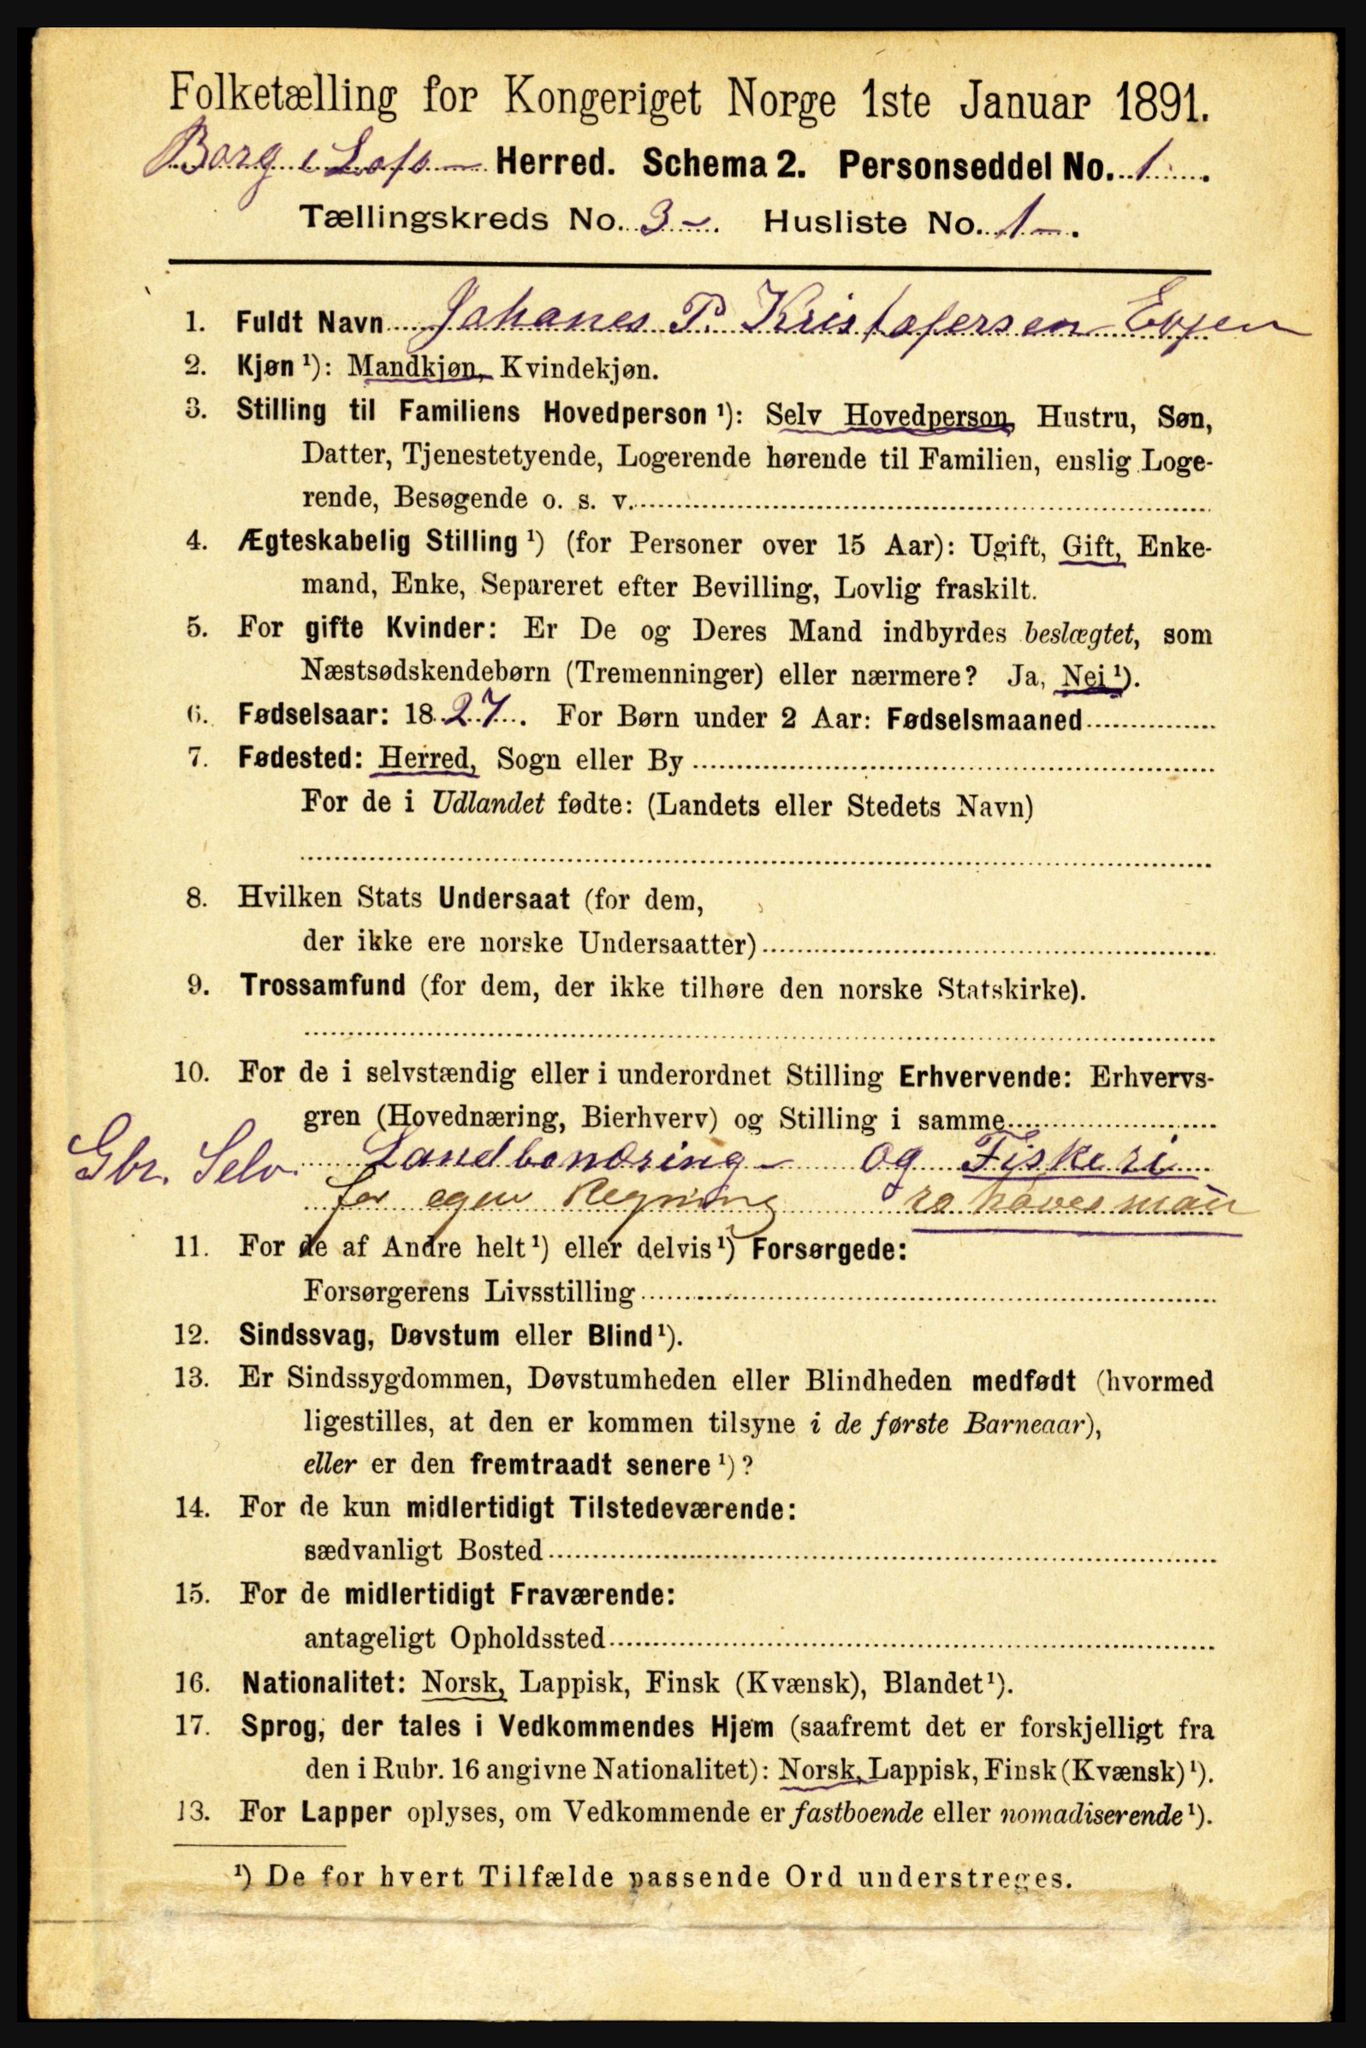 Folketælling for Kongeriget Norge 1ste Januar 1891.
Borg i Lofo- Herred. Schema 2. Personseddel No. 1.
Tællingskreds No. 3-. Husliste No. 1-.
1. Fuldt Navn Johanes P. Kristofersen Evjen
2. Kjøn ¹): Mandkjøn, Kvindekjøn.
3. Stilling til Familiens Hovedperson ¹): Selv Hovedperson, Hustru, Søn,
Datter, Tjenestetyende, Logerende hørende til Familien, enslig Loge-
rende, Besøgende o. s. v.
4. Ægteskabelig Stilling ¹) (for Personer over 15 Aar): Ugift, Gift, Enke-
mand, Enke, Separeret efter Bevilling, Lovlig fraskilt.
5. For gifte Kvinder: Er De og Deres Mand indbyrdes beslægtet, som
Næstsødskendebørn (Tremenninger) eller nærmere? Ja, Nei ¹).
6. Fødselsaar: 1827. For Børn under 2 Aar: Fødselsmaaned
7. Fødested: Herred, Sogn eller By
For de i Udlandet fødte: (Landets eller Stedets Navn)
8. Hvilken Stats Undersaat (for dem,
der ikke ere norske Undersaatter)
9. Trossamfund (for dem, der ikke tilhøre den norske Statskirke).
10. For de i selvstændig eller i underordnet Stilling Erhvervende: Erhvervs-
gren (Hovednæring, Bierhverv) og Stilling i samme
Gbr. Selv. Landbonæring - og Fiskeri
for egen Regning høvesman
11. For de af Andre helt ¹) eller delvis ¹) Forsørgede:
Forsørgerens Livsstilling
12. Sindssvag, Døvstum eller Blind ¹).
13. Er Sindssygdommen, Døvstumheden eller Blindheden medfødt (hvormed
ligestilles, at den er kommen tilsyne i de første Barneaar),
eller er den fremtraadt senere ¹)?
14. For de kun midlertidigt Tilstedeværende:
sædvanligt Bosted
15. For de midlertidigt Fraværende:
antageligt Opholdssted
16. Nationalitet: Norsk, Lappisk, Finsk (Kvænsk), Blandet ¹).
17. Sprog, der tales i Vedkommendes Hjem (saafremt det er forskjelligt fra
den i Rubr. 16 angivne Nationalitet): Norsk, Lappisk, Finsk (Kvænsk) ¹).
13. For Lapper oplyses, om Vedkommende er fastboende eller nomadiserende ¹).
¹) De for hvert Tilfælde passende Ord understreges.